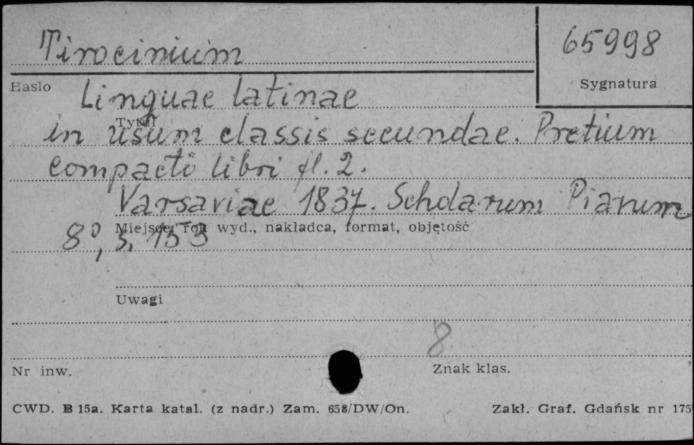 Tirocinium
65998
Hasło
Sygnatura
Linguae latinae
Tytuł
in usum classis secundae. Pretium
compacti libri fl. 2.
Varsaviae 1837. Scholarum Piarum
Miejsce, rok wyd., nakładca, format, objętość
8°, s. 153
Uwagi
8
Nr inw.
Znak klas.
CWD. B 15a. Karta katal. (z nadr.) Zam. 658/DW/On.
Zakł. Graf. Gdańsk nr 175